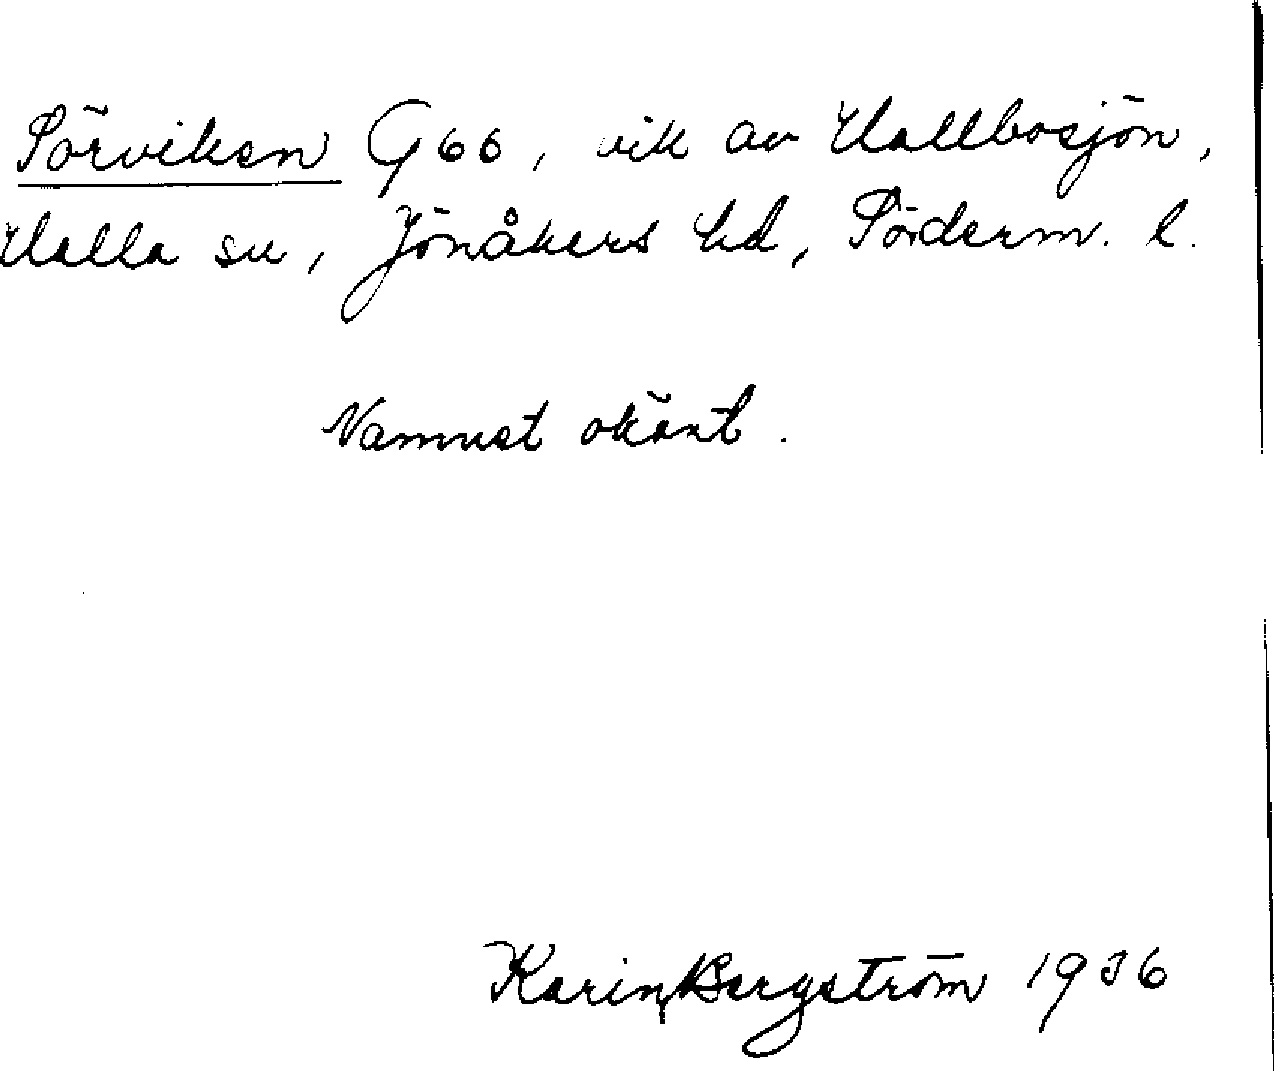 Sörviken G66, vik av Hallbosjön,
Halla sn, Jönåkers hd, Söderm. l.
Namnet okänt.
Karin Bergström 1936